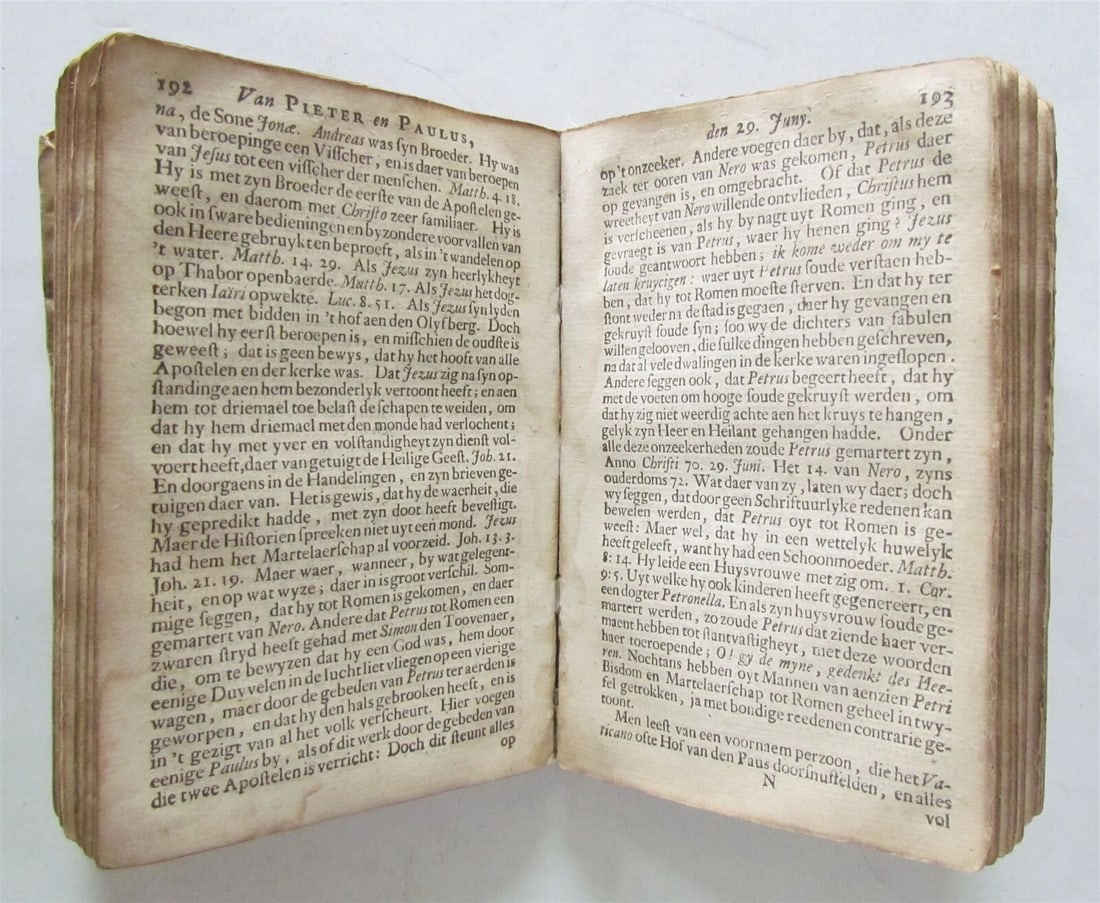 192
Van PIETER en PAULUS,
na, de Sone Jonæ. Andreas was ſyn Broeder. Hy was
van beroepinge een Viſſcher, en is daer van beroepen
van Jeſus tot een viſſcher der menſchen. Matth. 4. 18.
Hy is met zyn Broeder de eerſte van de Apoſtelen ge-
weeſt, en daerom met Chriſto zeer familiaer. Hy is
ook in ſware bedieningen en byzondere voorvallen van
den Heere gebruykt en beproeft, als in 't wandelen op
't water. Matth. 14. 29. Als Jezus zyn heerlykheyt
op Thabor openbaerde. Matth. 17. Als Jezus het dog-
terken Iaïri opwekte. Luc. 8. 51. Als Jezus ſyn lyden
begon met bidden in 't hof aen den Olyfberg. Doch
hoewel hy eerſt beroepen is, en miſſchien de oudſte is
geweeſt; dat is geen bewys, dat hy het hooft van alle
Apoſtelen en der kerke was. Dat Jezus zig na ſyn op-
ſtandinge aen hem bezonderlyk vertoont heeft; en aen
hem tot driemael toe belaſt de ſchapen te weiden, om
dat hy hem driemael met den monde had verlochent;
en dat hy met yver en volſtandigheyt zyn dienſt vol-
voert heeft, daer van getuigt de Heilige Geeſt. Joh. 21.
En doorgaens in de Handelingen, en zyn brieven ge-
tuigen daer van. Het is gewis, dat hy de waerheit, die
hy gepredikt hadde, met zyn doot heeft beveſtigt.
Maer de Hiſtorien ſpreeken niet uyt een mond. Jezus
had hem het Martelaerſchap al voorzeid. Joh. 13. 3.
Joh. 21. 19. Maer waer, wanneer, by wat gelegent-
heit, en op wat wyze; daer in is groot verſchil. Som-
mige ſeggen, dat hy tot Romen is gekomen, en daer
gemartert van Nero. Andere dat Petrus tot Romen een
zwaren ſtryd heeft gehad met Simon den Toovenaer,
die, om te bewyzen dat hy een God was, hem door
eenige Duyvelen in de lucht liet vliegen op een vierige
wagen, maer door de gebeden van Petrus ter aerden is
geworpen, en dat hy den hals gebrooken heeft, en is
in 't gezigt van al het volk verſcheurt. Hier voegen
eenige Paulus by, als of dit werk door de gebeden van
die twee Apoſtelen is verricht: Doch dit ſteunt alles
op
den 29. Juny.
193
op 't onzeeker. Andere voegen daer by, dat, als deze
zaek ter ooren van Nero was gekomen, Petrus daer
op gevangen is, en omgebracht. Of dat Petrus de
wreetheyt van Nero willende ontvlieden, Chriſtus hem
is verſcheenen, als hy by nagt uyt Romen ging, en
gevraegt is van Petrus, waer hy henen ging? Jezus
ſoude geantwoort hebben; ik kome weder om my te
laten kruycigen: waer uyt Petrus ſoude verſtaen heb-
ben, dat hy tot Romen moeſte ſterven. En dat hy ter
ſtont weder na de ſtad is gegaen, daer hy gevangen en
gekruyſt ſoude ſyn; ſoo wy de dichters van fabulen
willen gelooven, die ſulke dingen hebben geſchreven,
na dat al vele dwalingen in de kerke waren ingeſlopen.
Andere ſeggen ook, dat Petrus begeert heeft, dat hy
met de voeten om hooge ſoude gekruyſt werden, om
dat hy zig niet weerdig achte aen het kruys te hangen,
gelyk zyn Heer en Heilant gehangen hadde. Onder
alle deze onzeekerheden zoude Petrus gemartert zyn,
Anno Chriſti 70. 29. Juni. Het 14. van Nero, zyns
ouderdoms 72. Wat daer van zy, laten wy daer; doch
wy ſeggen, dat door geen Schriftuurlyke redenen kan
bewelen werden, dat Petrus oyt tot Romen is ge-
weeſt: Maer wel, dat hy in een wettelyk huwelyk
heeft geleeft, want hy had een Schoonmoeder. Matth.
8: 14. Hy leide een Huysvrouwe met zig om. 1. Cor.
9: 5. Uyt welke hy ook kinderen heeft gegenereert, en
een dogter Petronella. En als zyn huysvrouw ſoude ge-
martert werden, zo zoude Petrus dat ziende haer ver-
maent hebben tot ſtantvaſtigheyt, met deze woorden
haer toeroepende; O! gy de myne, gedenkt des Hee-
ren. Nochtans hebben oyt Mannen van aenzien Petri
Bisdom en Martelaerſchap tot Romen geheel in twy-
fel getrokken, ja met bondige reedenen contrarie ge-
toont.
Men leeſt van een voornaem perzoon, die het Va-
ticano ofte Hof van den Paus doorſnuffelden, en alles
N
vol